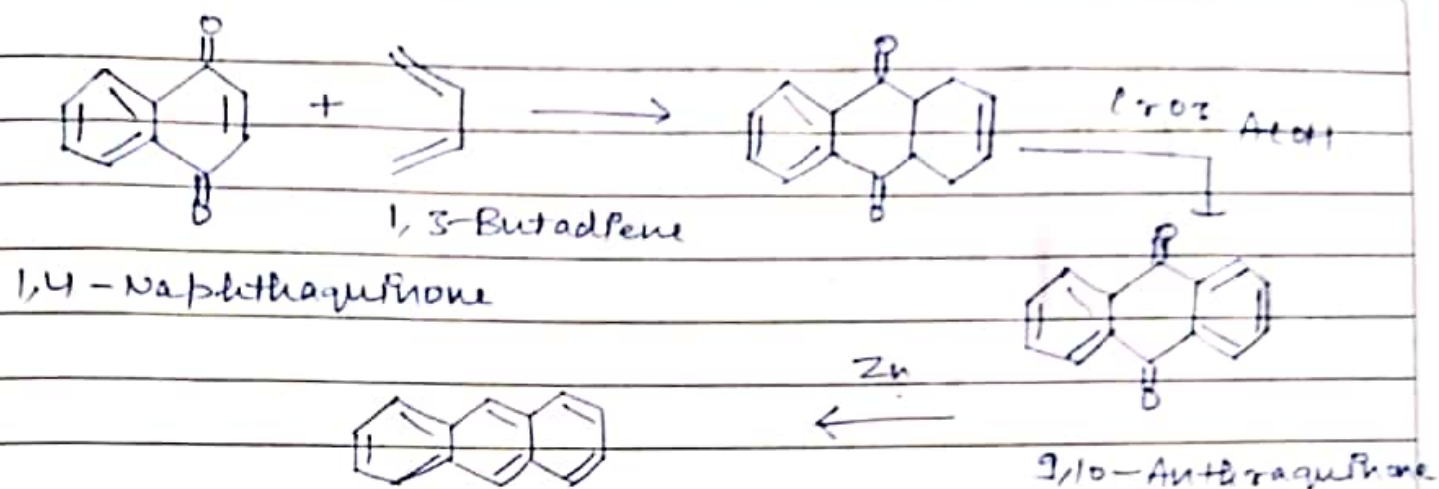 O O
+ CrO3 AcOH
O O
1,3-Butadiene
1,4-Naphthaquinone
O
Zn O
9,10-Anthraquinone